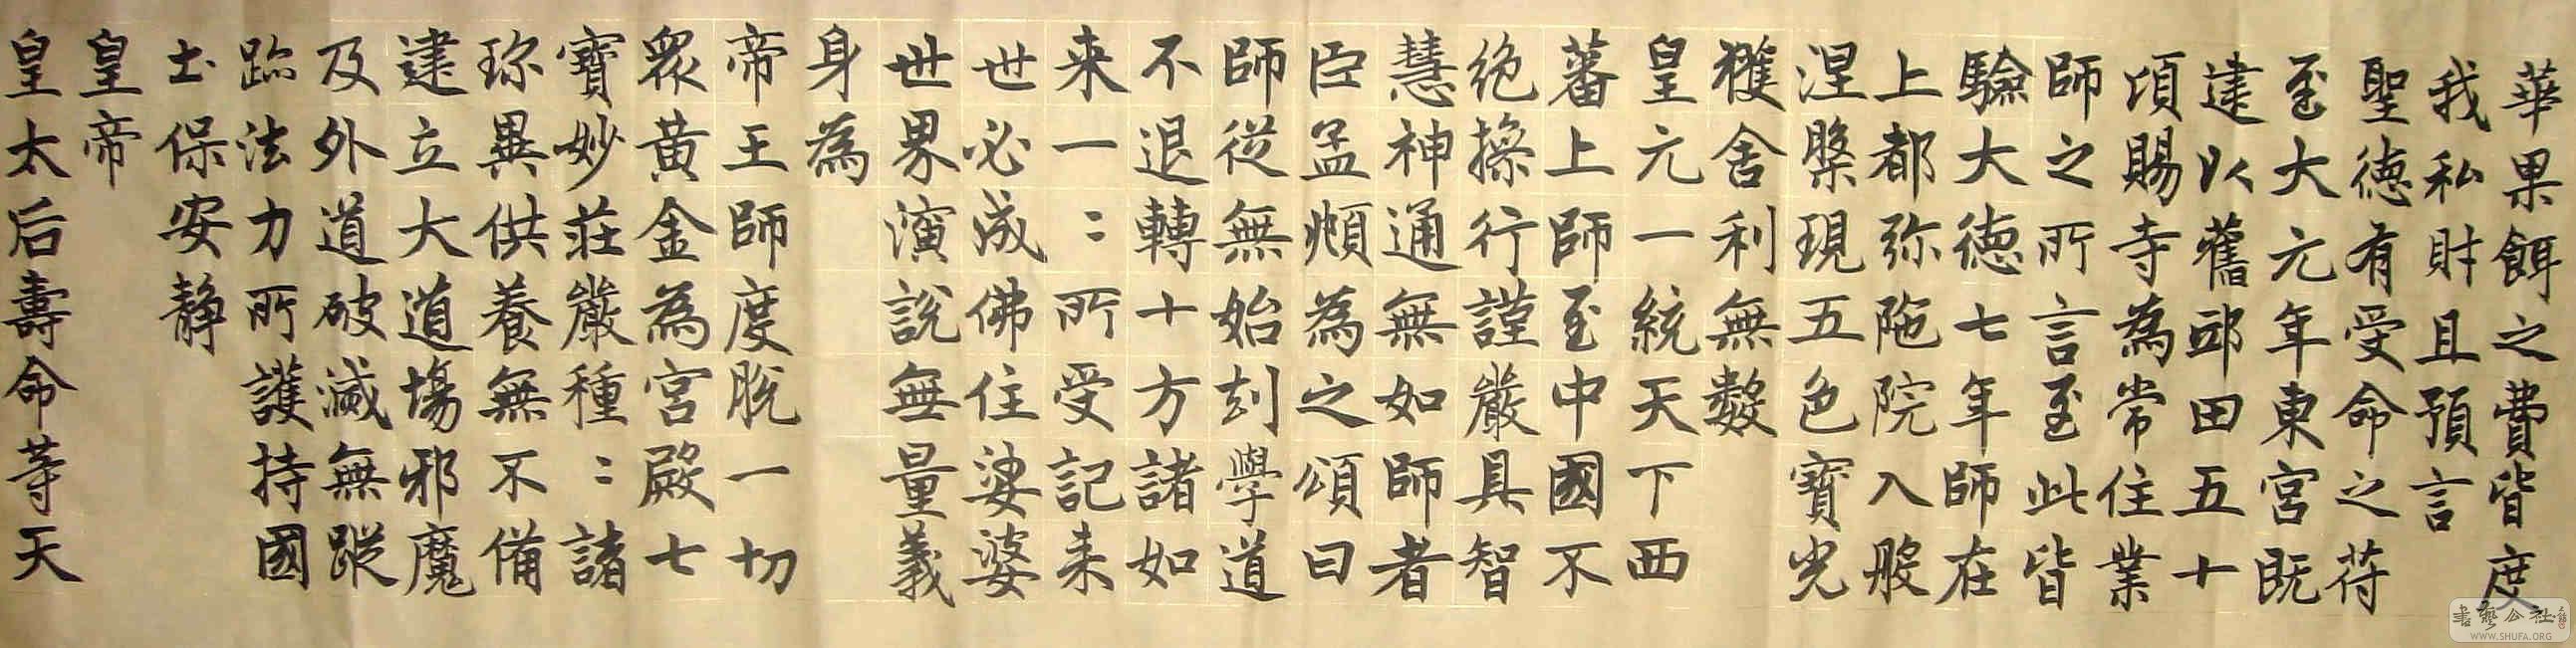 華果餌之費皆度
我私財且預言
聖德有受命之苻
至大元年東宮既
建以舊邸田五十
頃賜寺為常住業
師之所言至此皆
驗大德七年師在
上都弥陁院入般
涅槃現五色寶光
獲舍利無數
皇元一統天下西
蕃上師至中國不
絕操行謹嚴具智
慧神通無如師者
臣孟頫為之頌曰
師從無始刦學道
不退轉十方諸如
来一〻所受記来
世必成佛住娑婆
世界演說無量義
身為
帝王師度脫一切
衆黃金為宮殿七
寶妙莊嚴種〻諸
珎異供養無不備
建立大道場邪魔
及外道破滅無蹤
跡法力所護持國
土保安靜
皇帝
皇太后壽命等天
書藝公社
WWW.SHUFA.ORG